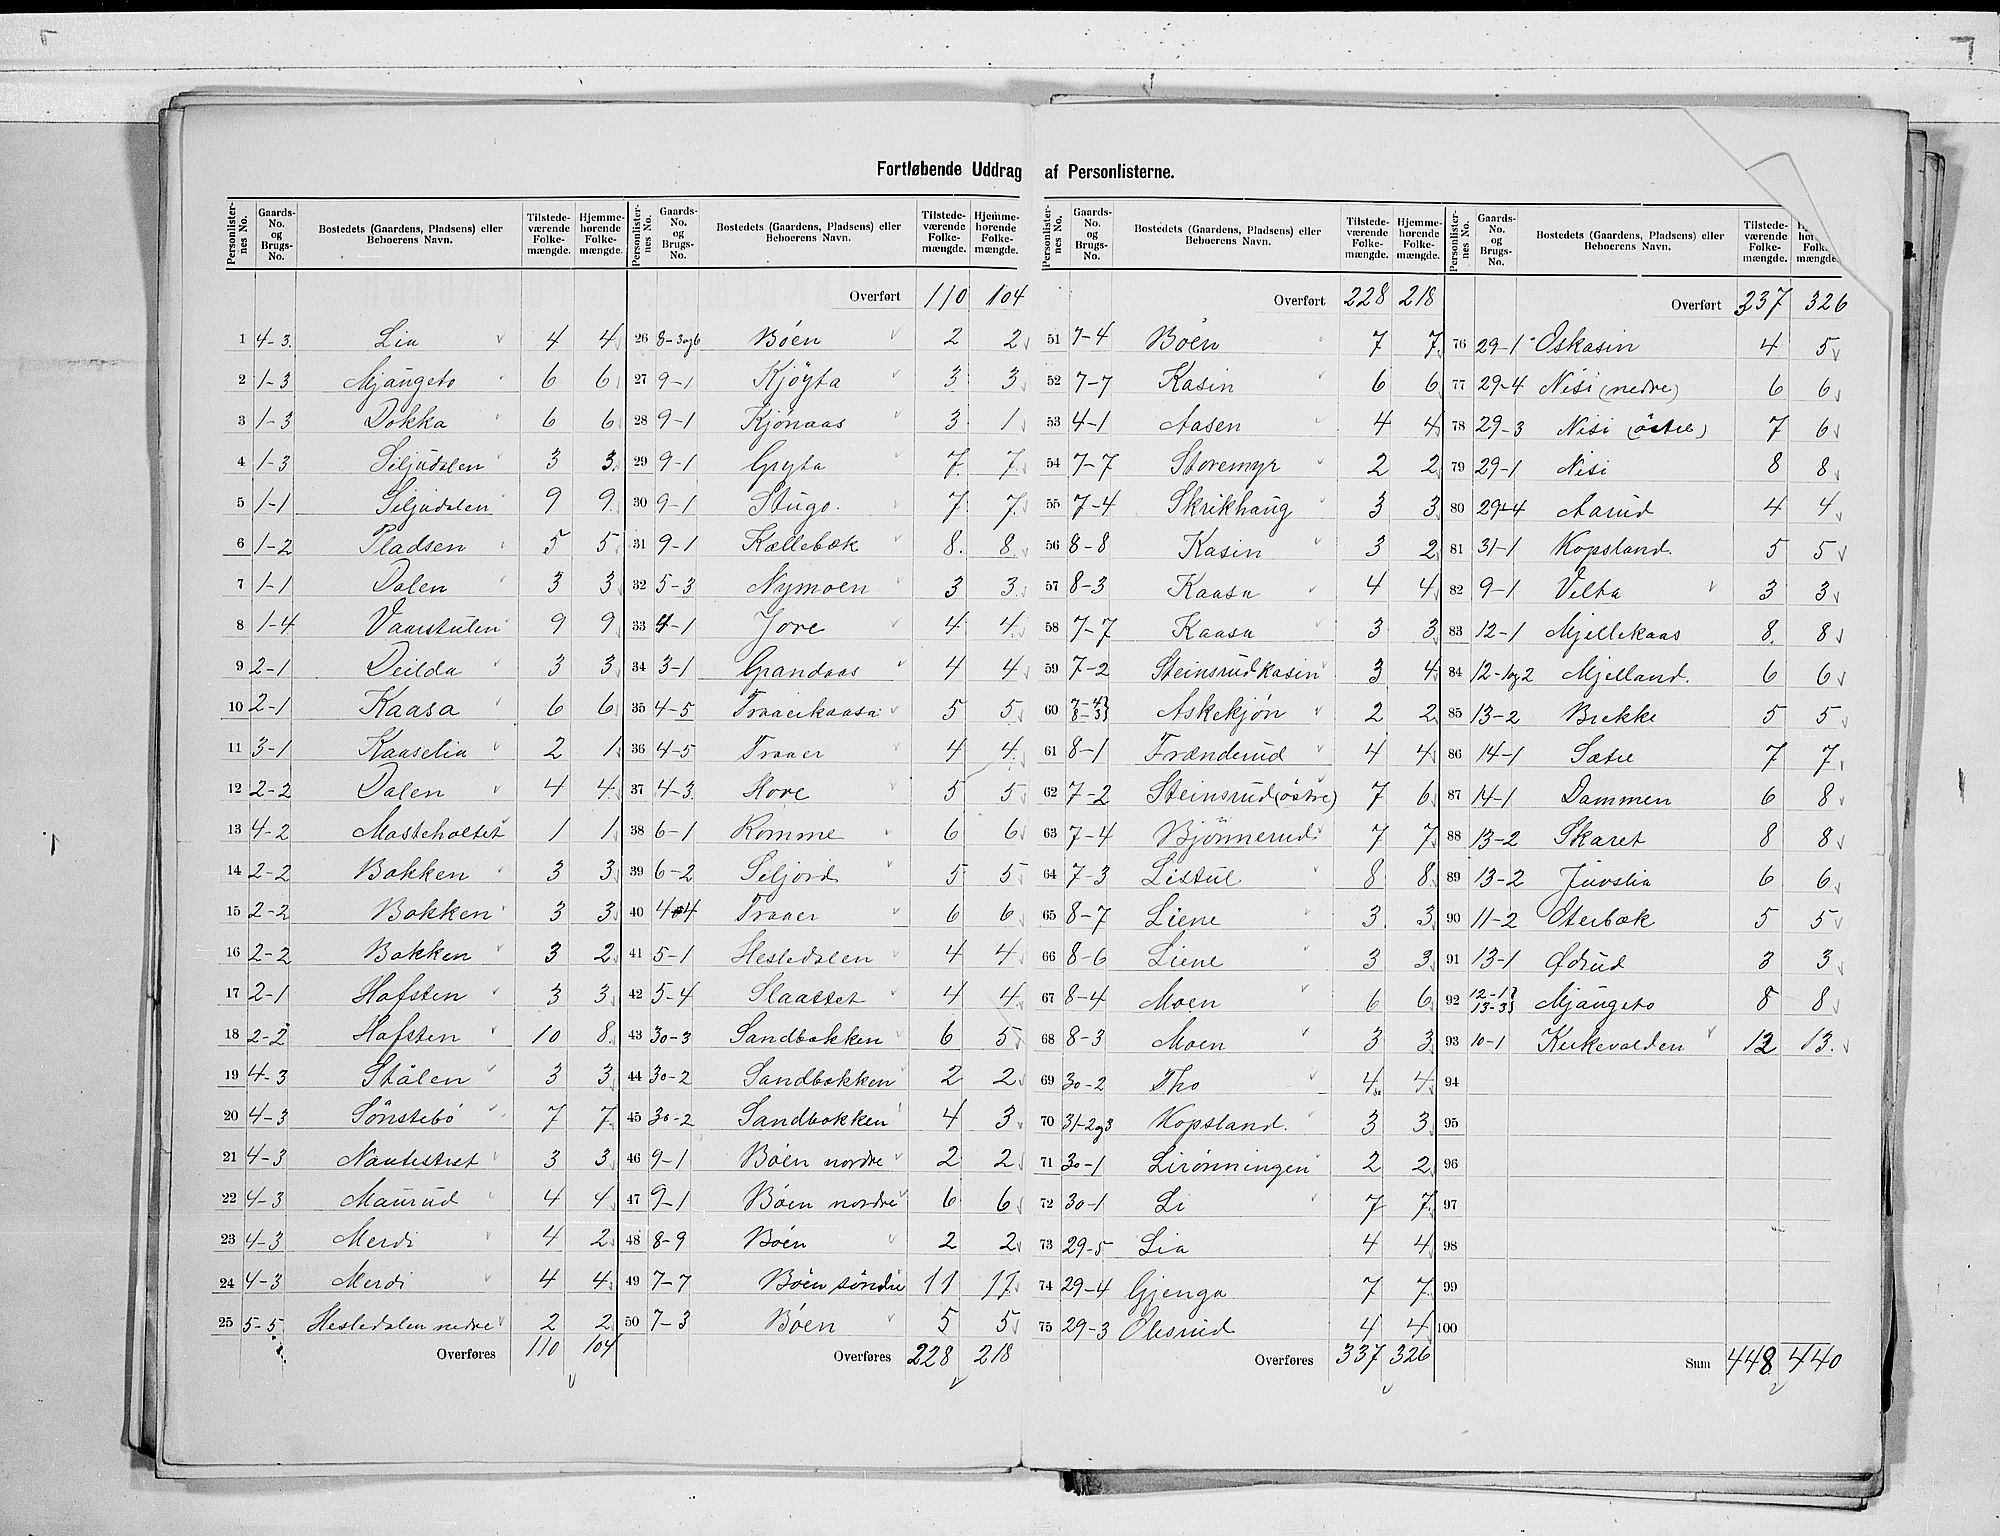 Fortløbende Uddrag af Personlisterne.
Personlister-nes No. Gaards-No. og Brugs-No. Bostedets (Gaardens, Pladsens) eller Beboerens Navn. Tilstede-værende Folke-mængde. Hjemme-hørende Folke-mængde.
1 4-3. Lia 4 4
2 1-3 Mjaugeto 6 6
3 1-3 Dokka 6 6
4 1-3 Siljudalen 3 3.
5 1-1 Siljudalen 9 9.
6 1-2 Pladsen 5 5
7 1-1 Dalen 3 3
8 1-4 Vaarstulen 9 9
9 2-1 Deilda 3 3
10 2-1 Kaasa 6 6
11 3-1 Kaaselia 2 1
12 2-2 Dalen 4 4
13 4-2 Masteholtet 1 1
14 2-2 Bakken 3 3
15 2-2 Bakken 3 3
16 2-2 Bakken 3 2
17 2-1 Hafsten 3 3
18 2-2 Hafsten 10 8
19 4-3 Stålen 3 3
20 4-3 Sønstebö 7 7
21 4-3 Nautestret 3 3
22 4-3 Maurud 4 4
23 4-3 Merdi 4 2
24 4-3 Merdi 4 4
25 5-5 Hesledalen nedre 2 2
Overføres 110 104
Personlister-nes No. Gaards-No. og Brugs-No. Bostedets (Gaardens, Pladsens) eller Beboerens Navn. Tilstede-værende Folke-mængde. Hjemme-hørende Folke-mængde.
Overført 110 104
26 8-3og6 Böen 2 2
27 9-1 Kjöyta 3 3
28 9-1 Kjönaas 3 1
29 9-1 Gryta 7. 7
30 9-1 Stugo. 7 7
31 9-1 Kællebæk 8. 8
32 5-3 Nymoen 3 3
33 4-1 Jore 4 4
34 3-1 Grandaas 4 4
35 4-5 Traaerkaasa 5 5
36 4-5 Traaer 4 4
37 4-3 Hove 5 5
38 6-1 Romme 6 6
39 6-2 Seljord 5 5
40 4-4 Traaer 6 6
41 5-1 Hesledalen 4 4
42 5-4 Slaattet 4 4
43 30-3 Sandbakken 6 5
44 30-2 Sandbakken 2 2
45 30-2 Sandbakken 4 3
46 9-1 Böen nordre 2 2
47 9-1 Böen nordre 6 6
48 8-9 Böen 2 2
49 7-7 Böen söndre 11 11
50 7-3 Böen 5 5
Overføres 228 218
Personlister-nes No. Gaards-No. og Brugs-No. Bostedets (Gaardens, Pladsens) eller Beboerens Navn. Tilstede-værende Folke-mængde. Hjemme-hørende Folke-mængde.
Overført 228 218
51 7-4 Böen 7 7
52 7-7 Kasin 6 6
53 4-1 Aasen 4 4
54 7-7 Storemyr 2 2
55 7-4 Skrikhaug 3 3
56 8-8 Kasin 3 2
57 8-3 Kaasa 4 4
58 7-7 Kaasa 3 3
59 7-2 Steinsrudkasin 3 4
60 7-4 8-3} Askekjön 2 2
61 8-1 Frænderud 4 4
62 7-2 Steinsrud (östre) 7 6
63 7-4 Bjönnerud 7 7
64 7-3 Listul 8 8
65 8-7 Liene 3 3
66 8-6 Liene 3 3
67 8-4 Moen 6 6
68 8-3 Moen 3 3
69 30-2 Tho 4 4
70 31-2og3 Kopsland. 3 3
71 30-1 Lirönningen 2 2
72 30-1 Li 7 7
73 29-5 Lia 4 4
74 29-4 Gjenga 7 7
75 29-3 Olisrud 4 4
Overføres 337 326
Personlister-nes No. Gaards-No. og Brugs-No. Bostedets (Gaardens, Pladsens) eller Beboerens Navn. Tilstede-værende Folke-mængde.
Overført 237 326
76 29-1 Oskasin 4 5
77 29-4 Nisi (nedre) 6 6
78 29-3 Nisi (östre) 7 6
79 29-1 Nisi 8 8
80 29-4 Aarud 4 4
81 31-1 Kopsland. 5 5
82 9-1 Velta 3 3
83 12-1 Mjellekaas 8. 8
84 12-1og2 Mjelland. 6 6
85 13-2 Brekke 5 5
86 14-1 Sætre 7 7
87 14-1 Dammen 6 8
88 13-2 Skaret 8 8
89 13-2 Juvslia 6 6
90 11-2 Oterbæk 5 5
91 13-1 Ødrud 3 3
92 12-1 13-3} Mjaugeto 8 8
93 10-1 Kirkevolden 12 13.
94
95
96
97
98
99
100
Sum 448 440